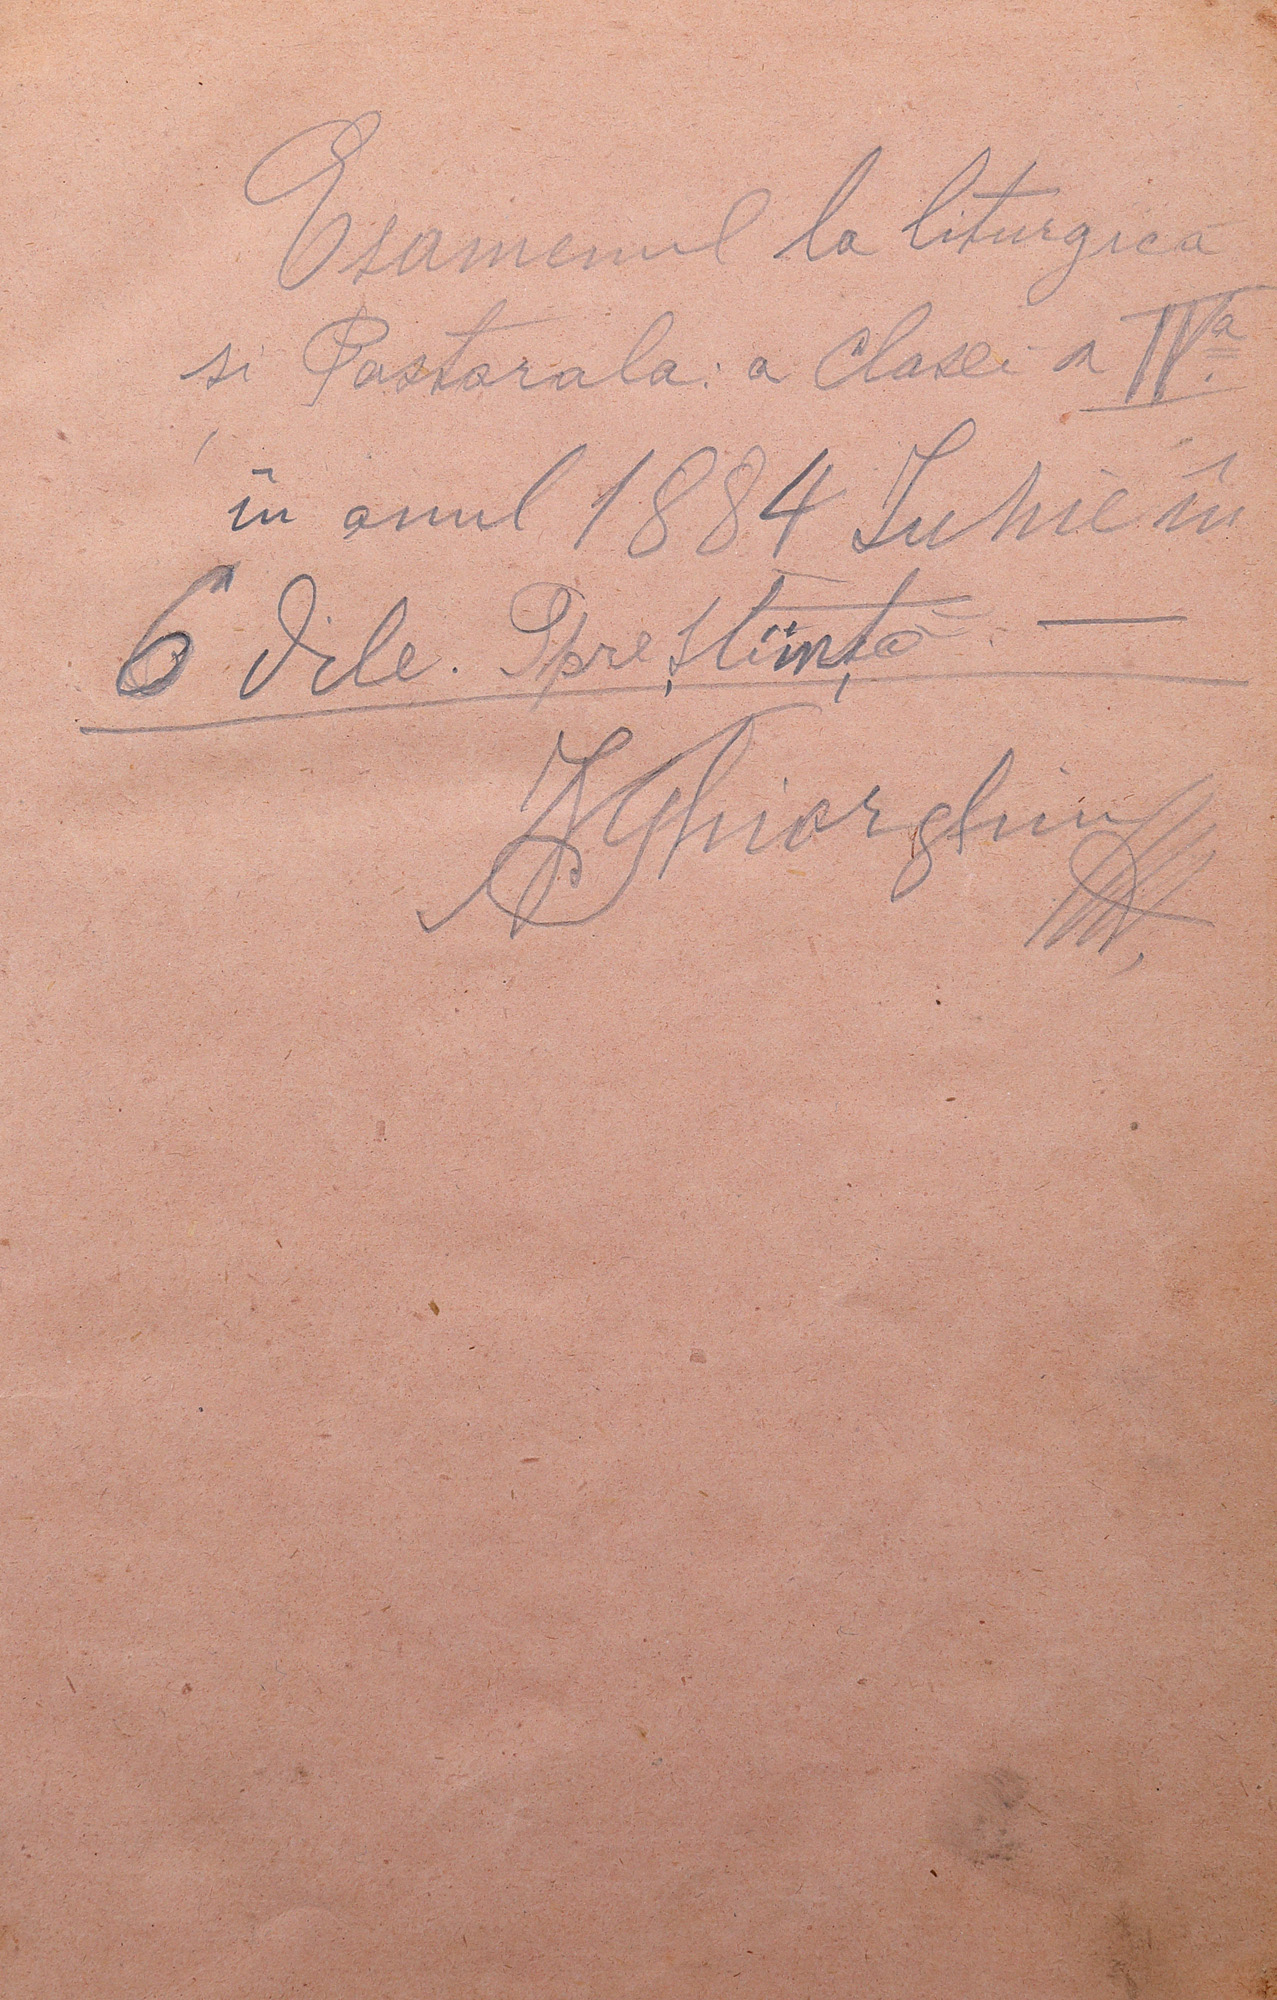 Esamenul la liturgica
si Pastorala: a Clasei a IVa.
în anul 1884 Iunie în
6 Dile. Spre știință —
I Ghiorghiu